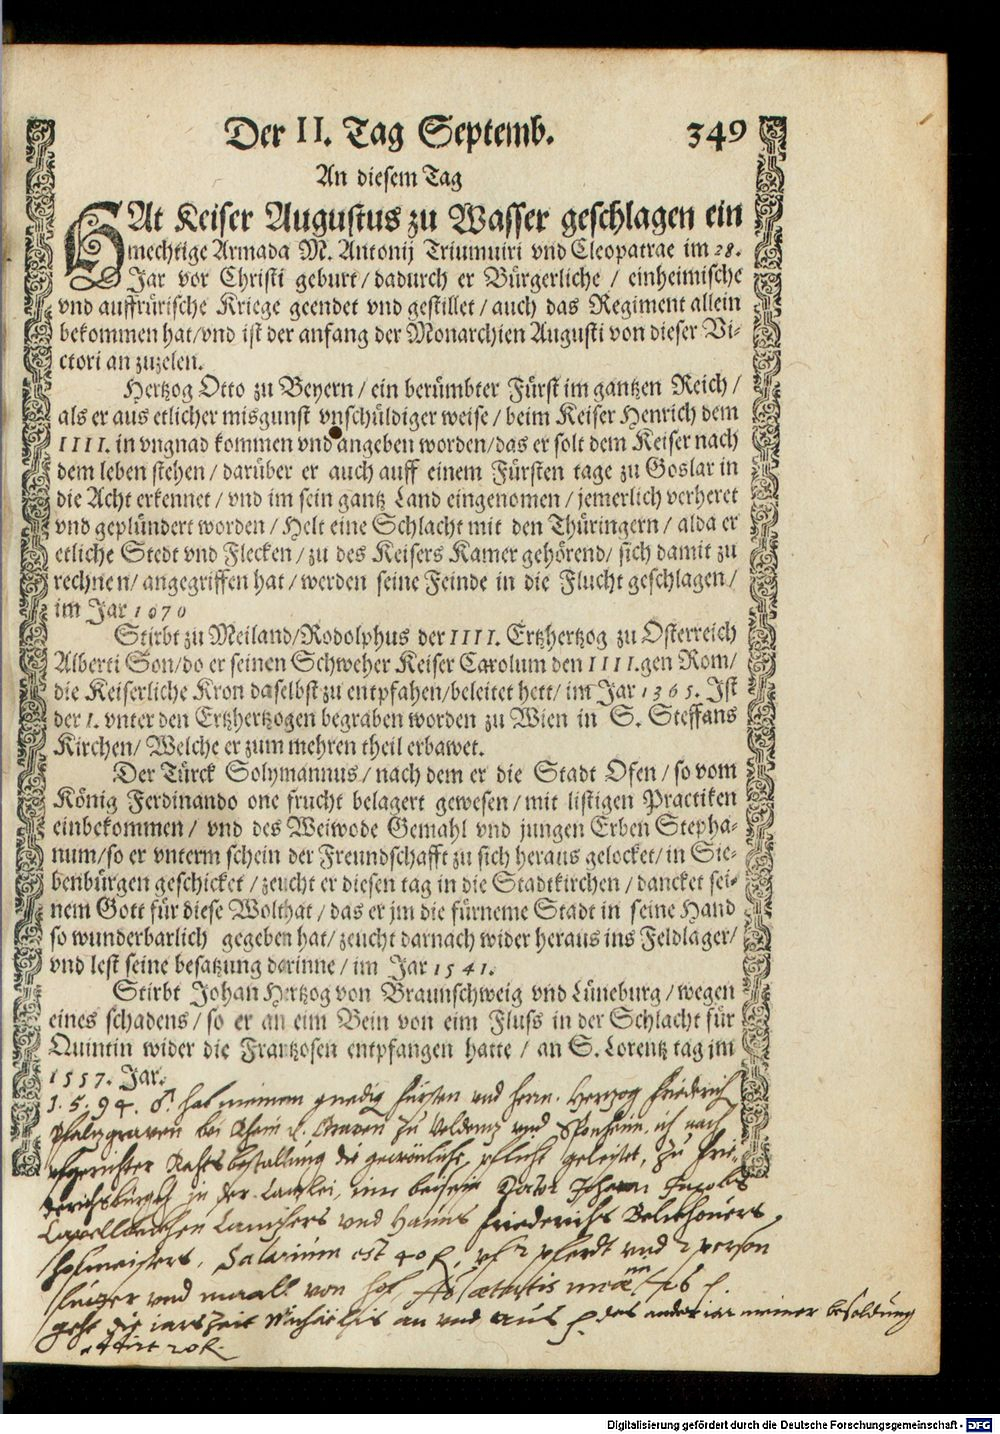 Der II. Tag Septemb. 349
An diesem Tag
HAt Keiser Augustus zu Wasser geschlagen ein
mechtige Armada M. Antonij Triumuiri vnd Cleopatrae im 28.
Jar vor Christi geburt / dadurch er Bürgerliche / einheimische
vnd auffrürische Kriege geendet vnd gestillet / auch das Regiment allein
bekommen hat/vnd ist der anfang der Monarchien Augusti von dieser Vi-
ctori an zuzelen.
Hertzog Otto zu Beyern / ein berümbter Fürst im gantzen Reich /
als er aus etlicher misgunst vnschüldiger weise / beim Keiser Henrich dem
IIII. in vngnad kommen vnd angeben worden/das er solt dem Keiser nach
dem leben stehen / darüber er auch auff einem Fürsten tage zu Goslar in
die Acht erkennet / vnd im sein gantz Land eingenomen / jemerlich verheret
vnd geplündert worden / Helt eine Schlacht mit den Thüringern / alda er
etliche Stedt vnd Flecken / zu des Keisers Kamer gehörend/ sich damit zu
rechnen/ angegriffen hat / werden seine Feinde in die Flucht geschlagen /
im Jar 1070
Stirbt zu Meiland/Rodolphus der IIII. Ertzhertzog zu Osterreich
Alberti Son/do er seinen Schweher Keiser Carolum den IIII.gen Rom/
die Keiserliche Kron daselbst zu entpfahen/beleitet hett/ im Jar 1365. Ist
der 1. vnter den Ertzhertzogen begraben worden zu Wien in S. Steffans
Kirchen/ Welche er zum mehren theil erbawet.
Der Türck Solymannus / nach dem er die Stadt Ofen / so vom
König Ferdinando one frucht belagert gewesen / mit listigen Practiken
einbekommen / vnd des Weiwode Gemahl vnd jungen Erben Stepha-
num/so er vnterm schein der Freundschafft zu sich heraus gelocket/ in Sie-
benbürgen geschicket / zeucht er diesen tag in die Stadtkirchen / dancket sei-
nem Gott für diese Wolthat / das er jm die fürneme Stadt in seine Hand
so wunderbarlich gegeben hat/ zeucht darnach wider heraus ins Feldlager/
vnd lest seine besatzung dorinne / im Jar 1541.
Stirbt Johan Hertzog von Braunschweig vnd Lüneburg / wegen
eines schadens / so er an eim Bein von eim Fluss in der Schlacht für
Quintin wider die Frantzosen entpfangen hatte / an S. Lorentz tag jm
1557. Jar.
1.5.94. hab meinem gnedig fürsten vnd herrn. Hertzog Friedrich
Pfaltzgraven bei Rhein Graven zu Veldentz vnd Sponheim, ich nach
Rahtsbestallung die gewönliche pflicht geleistet, zu Frie-
derichsbürgk in der Cantzlei, im beisein Johann Jacobs
vnd Hanns Friederichs
hofmeisters. Salarium est 40 vf 2 pferdt vnd 2 person
vnd maall von hof,
geht die iarszeit Michaelis an vnd aus meiner besoldung
20
Digitalisierung gefördert durch die Deutsche Forschungsgemeinschaft - DFG